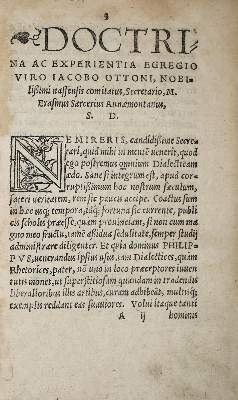 DOCTRI
NA AC EXPERIENTIA EGREGIO
VIRO IACOBO OTTONI, NOBI-
lissimi nassensis comitatus, Secretario, M.
Erasmus Sarcerius Annæmontanus,
S. D.
NE MIRERIS, candidissime Secre
tari, quid mihi in mentē venerit, quod
ego postremus omnium Dialecticam
ædo. Sane si integrum est, apud cor-
ruptissimum hoc nostrum sæculum,
fateri veritatem, rem sic paucis accipe. Coactus sum
in hoc usq; tempora, utcq; fortuna sic currente, publi
cis scholis præesse, quam provinciam, si non cum ma
gno meo fructu, tamē assidua sedulitate, semper studij
administrare diligenter. Et quia dominus PHILIP-
PVS, venerandus ipsius usu, tam Dialectices, quàm
Rhetorices, pater, nō uno in loco præceptores iuven
tutis monet, ut superstitiosam quandam in tradendis
liberalioribus illis artibus, curam adhibeāt, multisq;
exemplis reddant eas suaviores. Volui itaque tanti
A ij hominis